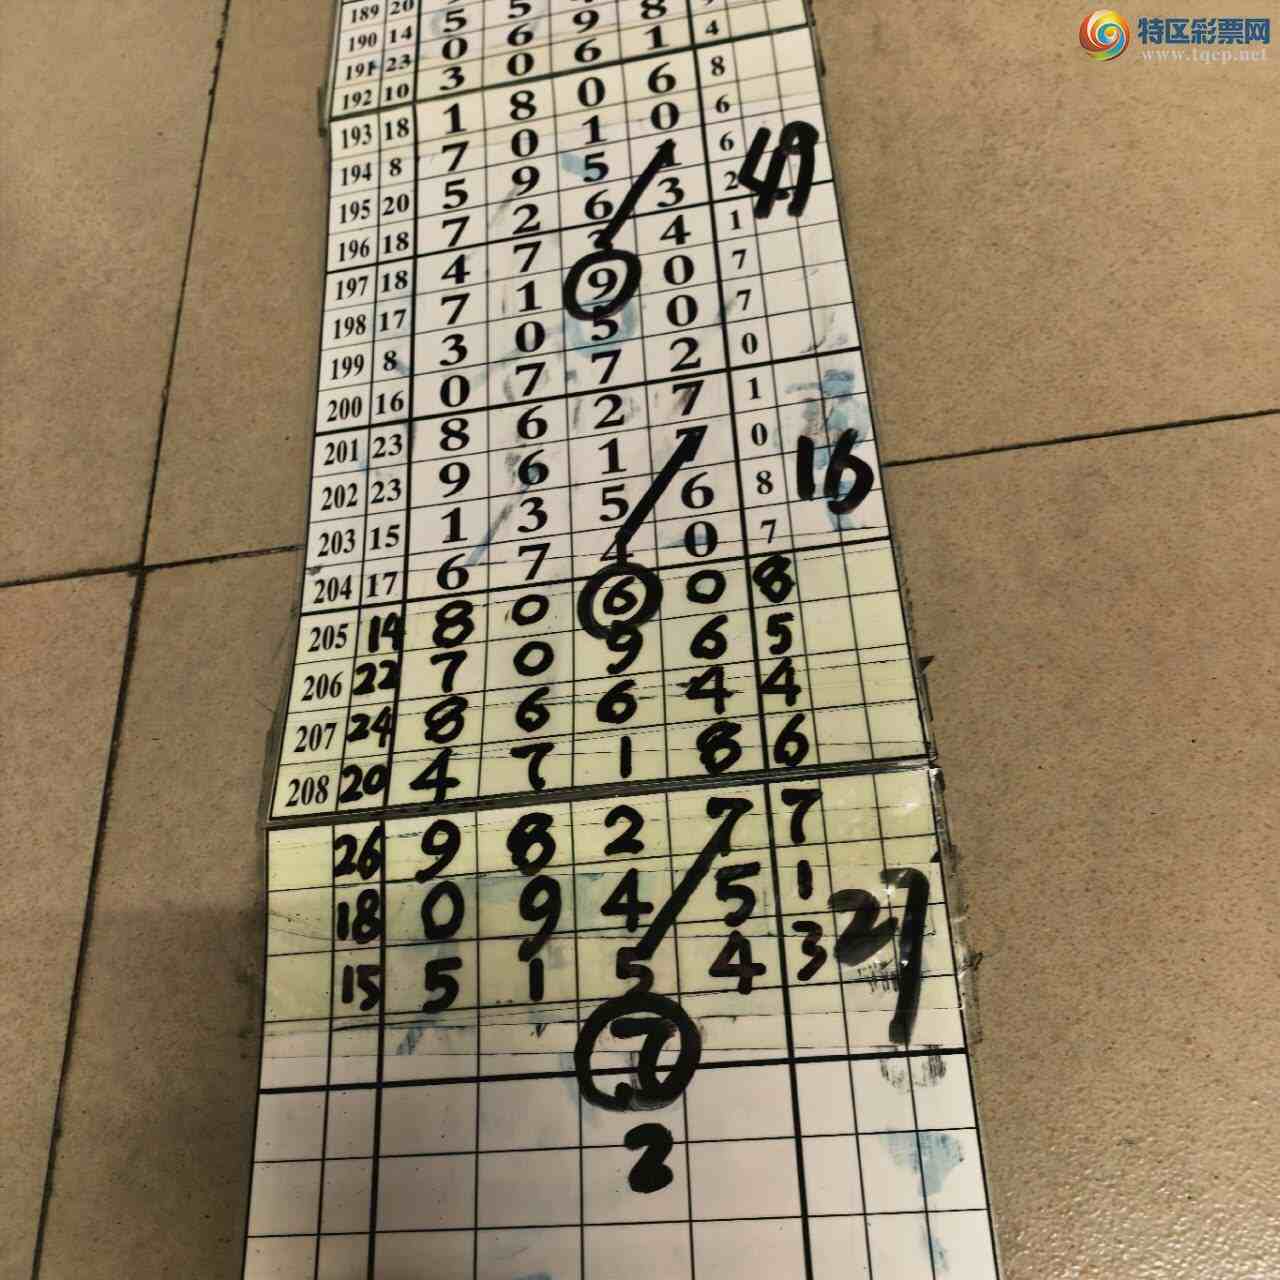 特区彩票网
www.tqcp.net
189 20 5 5 8
190 14 0 6 9 1 4
191 23 3 0 6 6 8
192 10 1 8 0 0 6
193 18 7 0 1 1 6
194 8 5 9 5 3 2 49
195 20 7 2 6 4 1
196 18 4 7 0 7
197 18 7 1 9 0 7
198 17 3 0 5 2 0
199 8 0 7 7 7 1
200 16 8 6 2 7 0
201 23 9 6 1 6 8 16
202 23 1 3 5 0 7
203 15 6 7 4 0 8
204 17 8 0 6 6 5
205 14 7 0 9 4 4
206 22 8 6 6 8 6
207 24 4 7 1
208 20
26 9 8 2 7 7
18 0 9 4 5 1
15 5 1 5 4 3 27
7
2